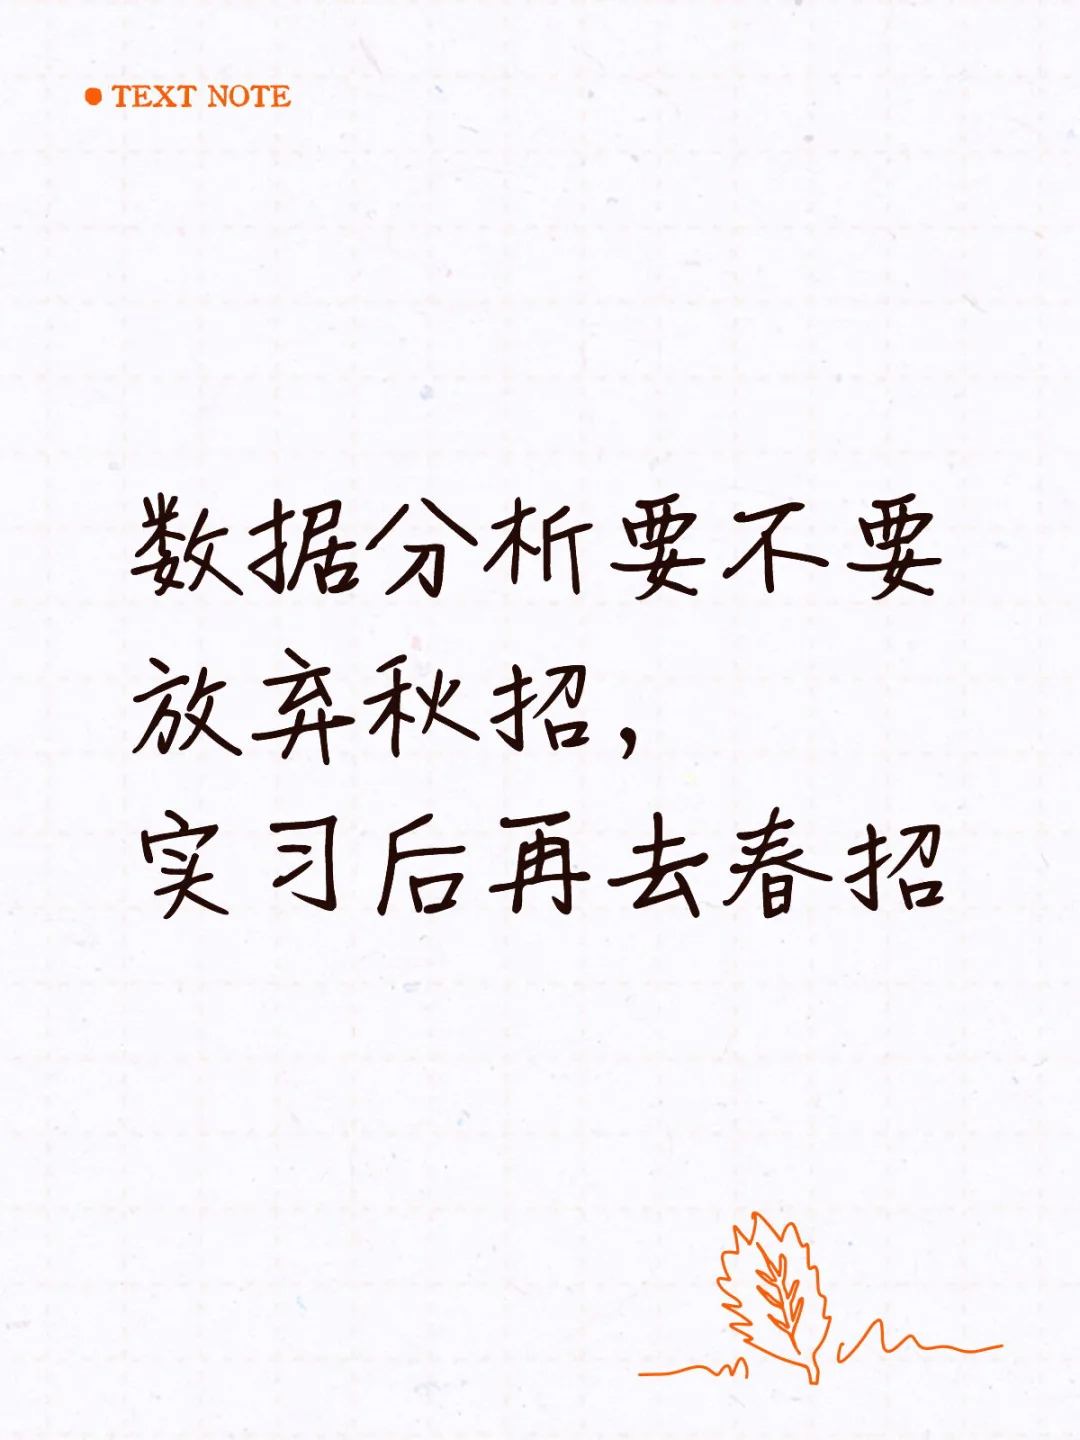 TEXT NOTE
数据分析要不要
放弃秋招，
实习后再去春招